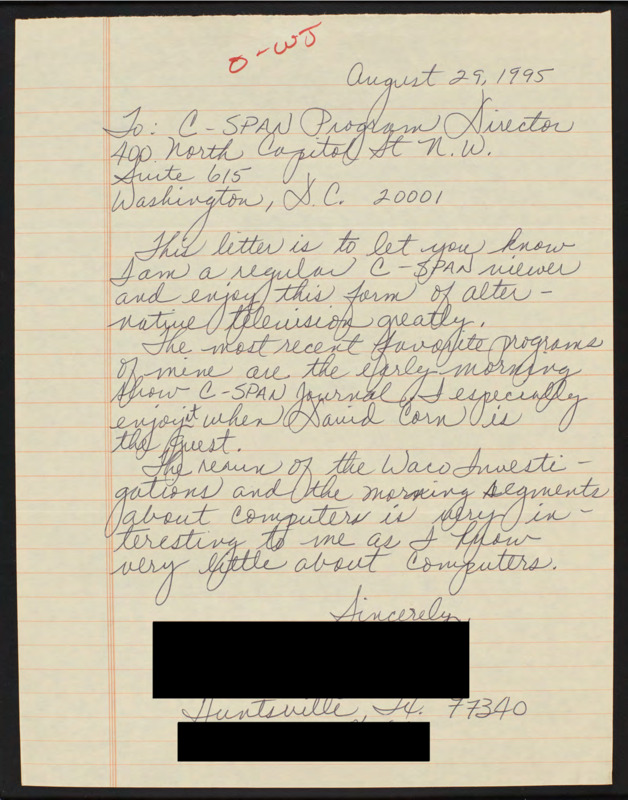 O-WJ
August 29, 1995
To: C-SPAN Program Director
400 North Capitol St N.W.
Suite 615
Washington, D.C. 20001
This letter is to let you know
I am a regular C-SPAN viewer
and enjoy this form of alter-
native television greatly.
The most recent favorite programs
of mine are the early-morning
show C-SPAN Journal. I especially
enjoy it when David Corn is
the guest.
The rerun of the Waco Investi-
gations and the morning segments
about computers is very in-
teresting to me as I know
very little about computers.
Sincerely,
Huntsville, Tx. 77340